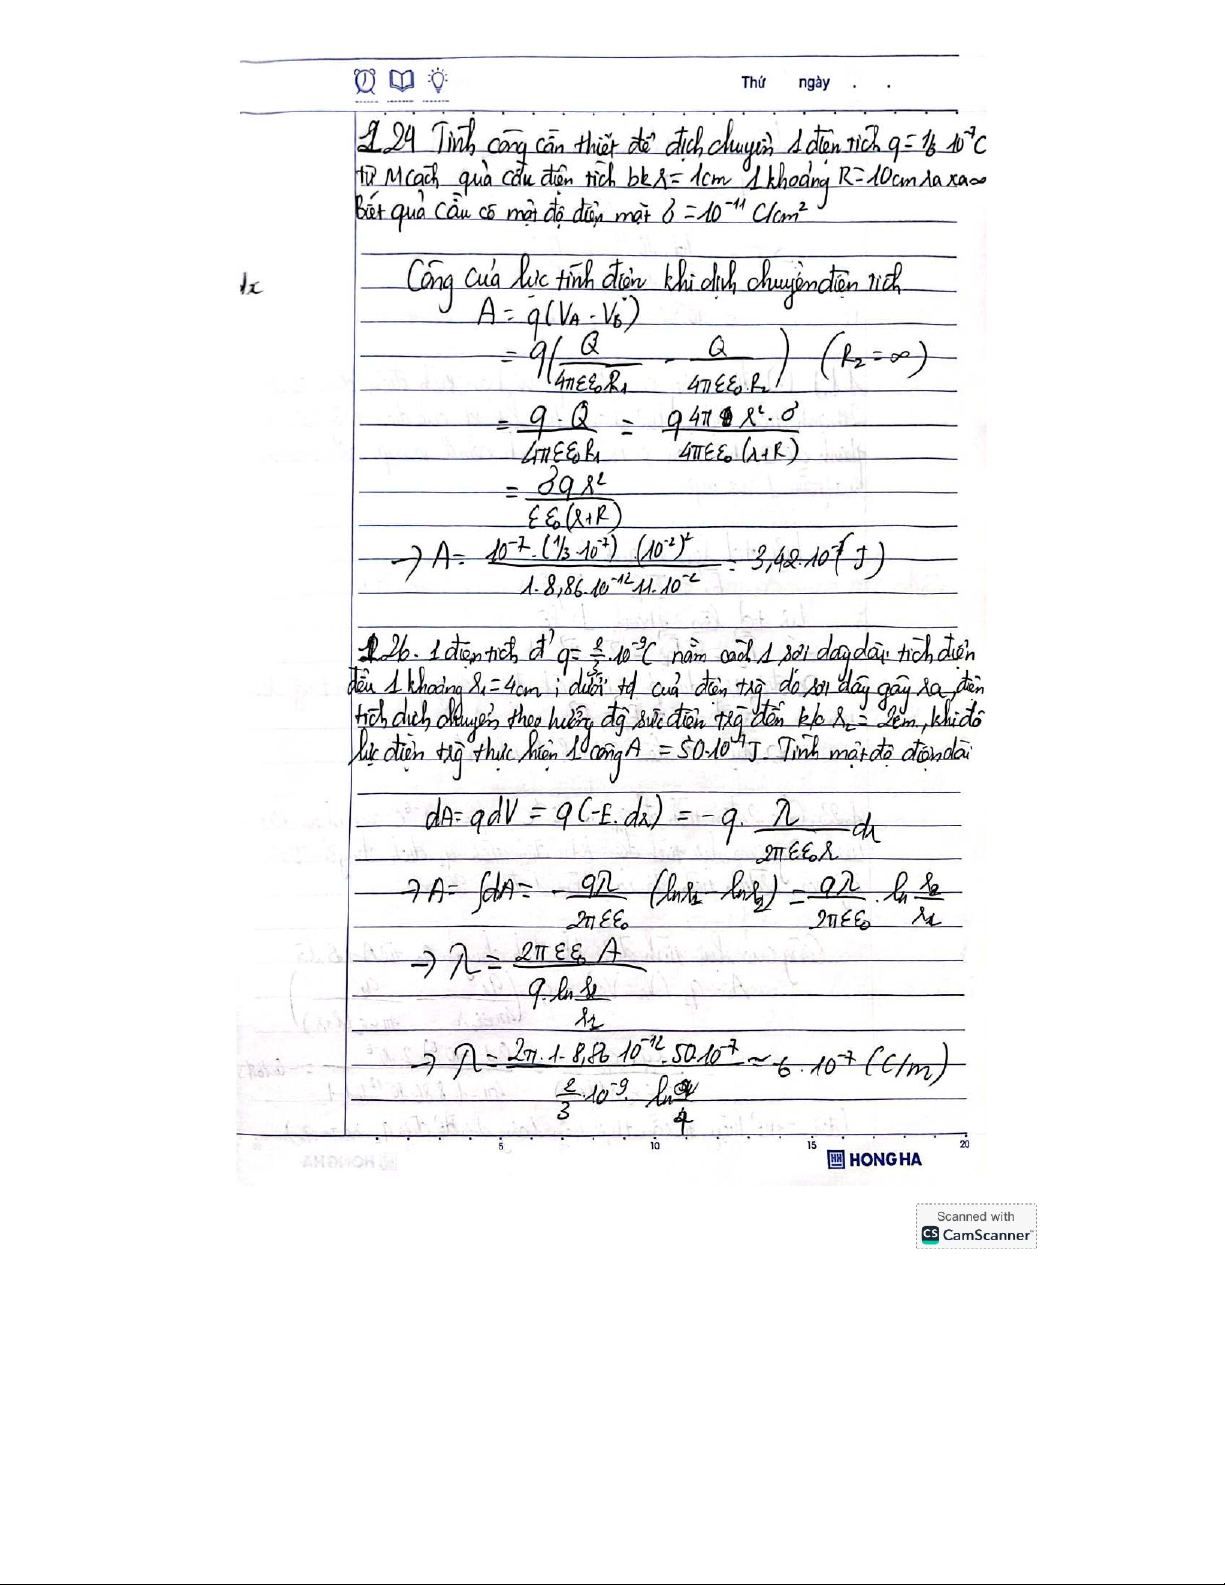 Thứ ngày . .
1.24 Tính công cần thiết để dịch chuyển 1 điện tích q = 1/3 10⁻⁷C
từ M cách quả cầu điện tích bk r = 1cm 1 khoảng R = 10cm ra xa ∞
Biết quả cầu có mật độ điện mặt σ = 10⁻¹¹ C/cm²
dx
Công của lực tĩnh điện khi dịch chuyển điện tích
A = q(V_A - V_B)
= q(Q/(4πεε₀R₁) - Q/(4πεε₀.R₂)) (R₂ = ∞)
= q.Q/(4πεε₀R₁) = q 4π r².σ/(4πεε₀(r+R))
= σqr²/(εε₀(r+R))
→ A = 10⁻⁷.(1/3.10⁻⁷).(10⁻²)²/(1.8,86.10⁻¹².11.10⁻²) = 3,42.10⁻⁷(J)
1.26. 1 điện tích đ' q = 2/3.10⁻⁹C nằm cách 1 sợi dây dài tích điện
đều 1 khoảng r₁ = 4cm ; dưới td của điện trg do sợi dây gây ra, điện
tích dịch chuyển theo hướng đg sức điện trg đến k/c r₂ = 2cm, khi đó
lực điện trg thực hiện 1 công A = 50.10⁻⁷J. Tính mật độ điện dài
dA = qdV = q(-E.dr) = -q.λ/(2πεε₀r) dr
→ A = ∫dA = -qλ/(2πεε₀) (lnr₁ - lnr₂) = qλ/(2πεε₀).ln r₂/r₁
→ λ = 2πεε₀A/(q.ln r₂/r₁)
→ λ = 2π.1.8,86.10⁻¹².50.10⁻⁷/(2/3.10⁻⁹.ln 2/4) ≈ 6.10⁻⁷ (C/m)
5 10 15 20
HH HONG HA
Scanned with
CS CamScanner